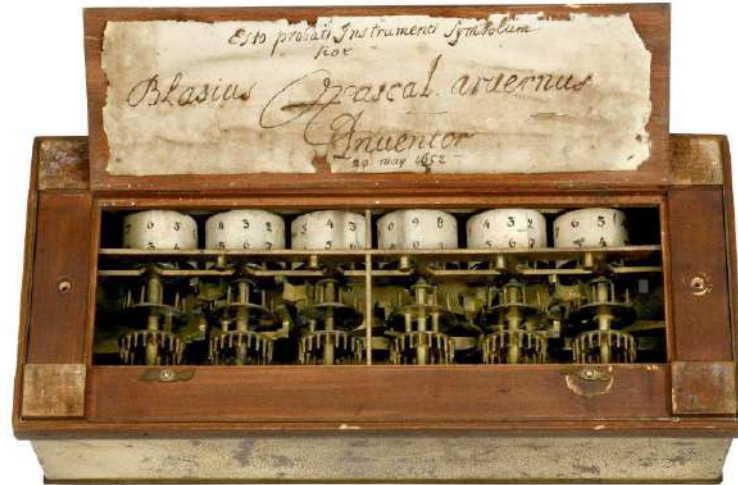 Esto probati Instrumenti Symbolum
hoc
Blasius Pascal arvernus
Inventor
20 may 1652
7 6 5
4 3 2
5 4 3
0 9 8
4 3 2
7 6 5